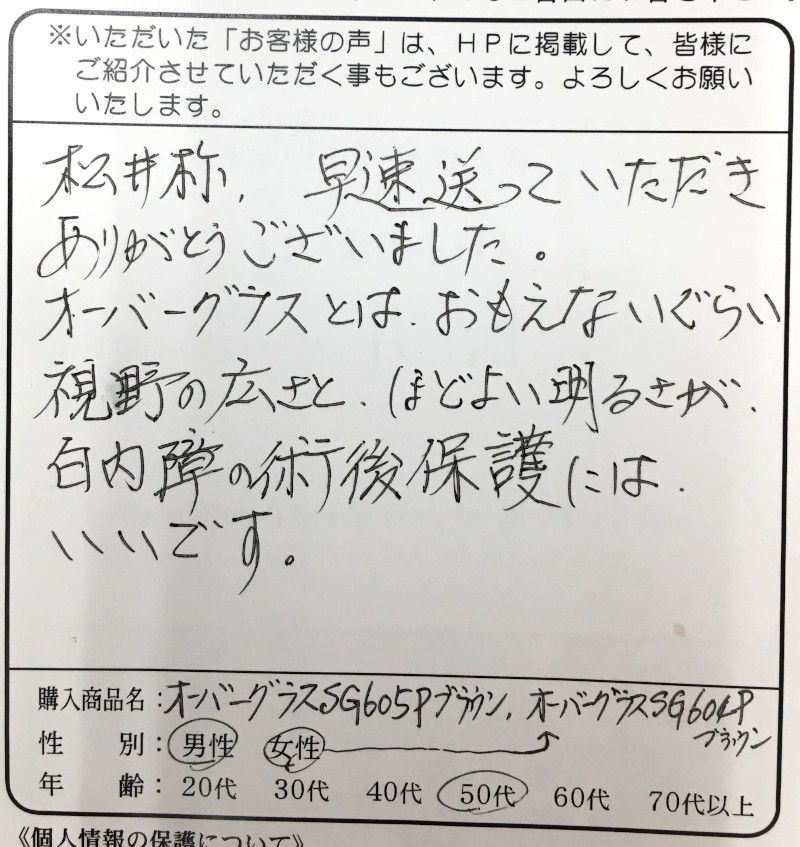 ※いただいた「お客様の声」は、HPに掲載して、皆様に
ご紹介させていただく事もございます。よろしくお願い
いたします。
松井様、早速送っていただき
ありがとうございました。
オーバーグラスとは、おもえないぐらい
視野の広さと、ほどよい明るさが、
白内障の術後保護には、
いいです。
購入商品名：オーバーグラスSG605Pブラウン、オーバーグラスSG604P
ブラウン
性別：男性 女性
年齢：20代 30代 40代 50代 60代 70代以上
《個人情報の保護について》